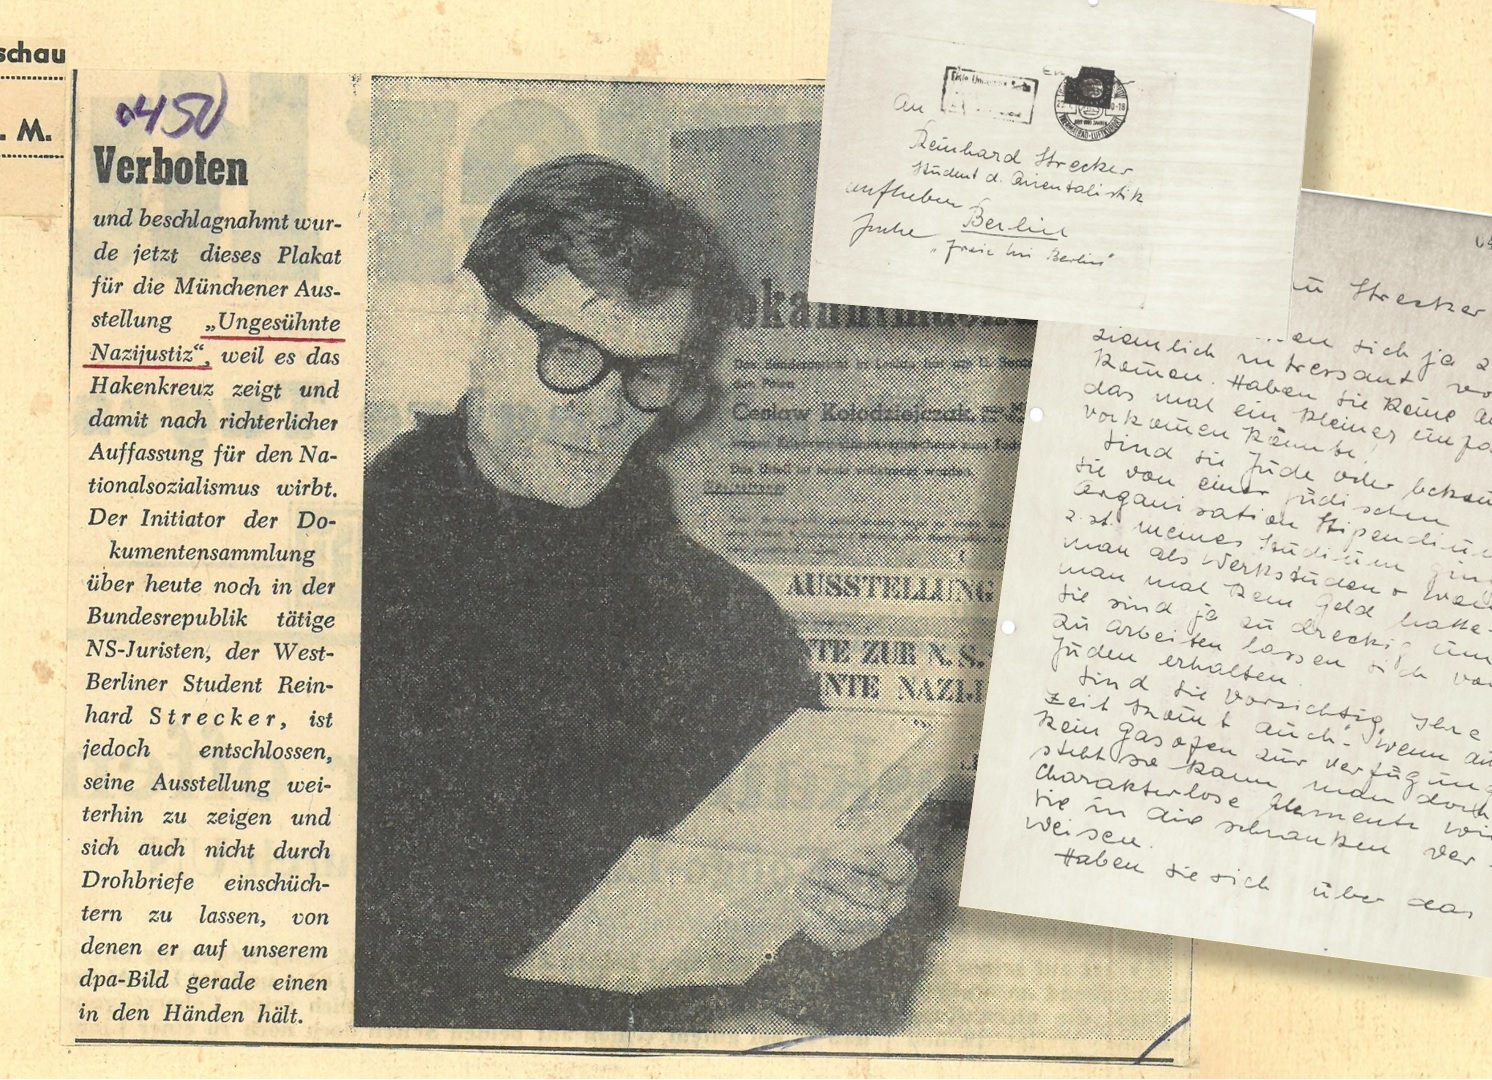 schau
. M.
450
Verboten
und beschlagnahmt wur-
de jetzt dieses Plakat
für die Münchener Aus-
stellung „Ungesühnte
Nazijustiz“, weil es das
Hakenkreuz zeigt und
damit nach richterlicher
Auffassung für den Na-
tionalsozialismus wirbt.
Der Initiator der Do-
kumentensammlung
über heute noch in der
Bundesrepublik tätige
NS-Juristen, der West-
Berliner Student Rein-
hard Strecker, ist
jedoch entschlossen,
seine Ausstellung wei-
terhin zu zeigen und
sich auch nicht durch
Drohbriefe einschüch-
tern zu lassen, von
denen er auf unserem
dpa-Bild gerade einen
in den Händen hält.
den Polen
Ceslaw Kolodziejczak,
Das Urteil ist heute vollstreckt worden.
AUSSTELLUNG
NTE ZUR N.S.
NTE NAZIJ
An
Reinhard Strecker
Student d. Orientalistik
aufheben Berlin
"Freie Uni Berlin"
Strecker
en sich ja
ziemlich intressant
komen. Haben sie keine
das mal ein kleiner
vorkomen könnte.
Sind sie Jude oder
sie von einer jüdischen
organisation Stipendium
z. Zt. meines Studium
man als Werkstudent
man mal kein Geld hatte
sie sind ja zu dreckig um
zu arbeiten lassen sich von
Juden erhalten.
Sind sie vorsichtig, ihre
zeit komt auch. Wenn
kein gasofen zur verfügung
steht so kann man doch
charakterlose Elemente wie
sie in die schranken ver-
weisen.
Haben sie sich über das